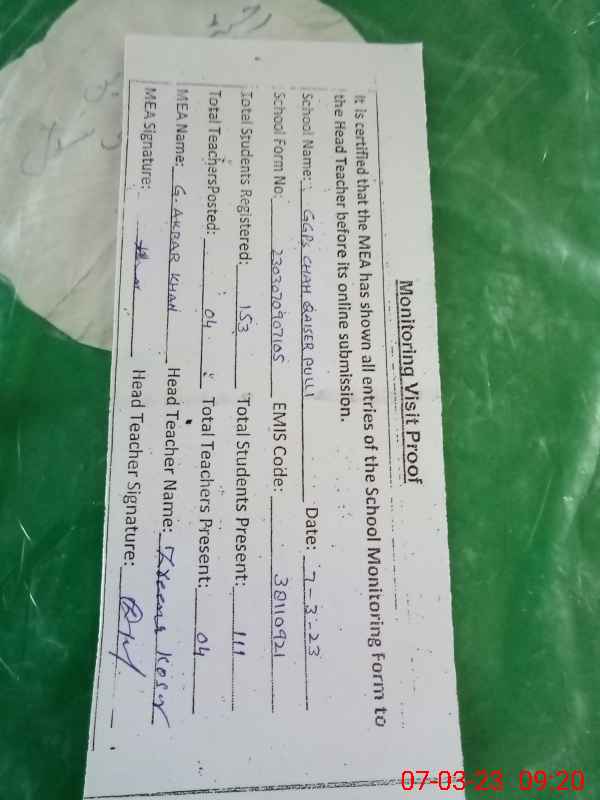 Monitoring Visit Proof
It is certified that the MEA has shown all entries of the School Monitoring Form to
the Head Teacher before its online submission.
School Name: GGPS CHAH QAISER PULLI Date: 7-3-23
School Form No: 2303070907105 EMIS Code: 38110921
Total Students Registered: 153 Total Students Present: 111
Total TeachersPosted: 04 Total Teachers Present: 04
MEA Name: G. AKBAR KHAN Head Teacher Name: Kosar
MEA Signature: Head Teacher Signature:
07-03-23 09:20